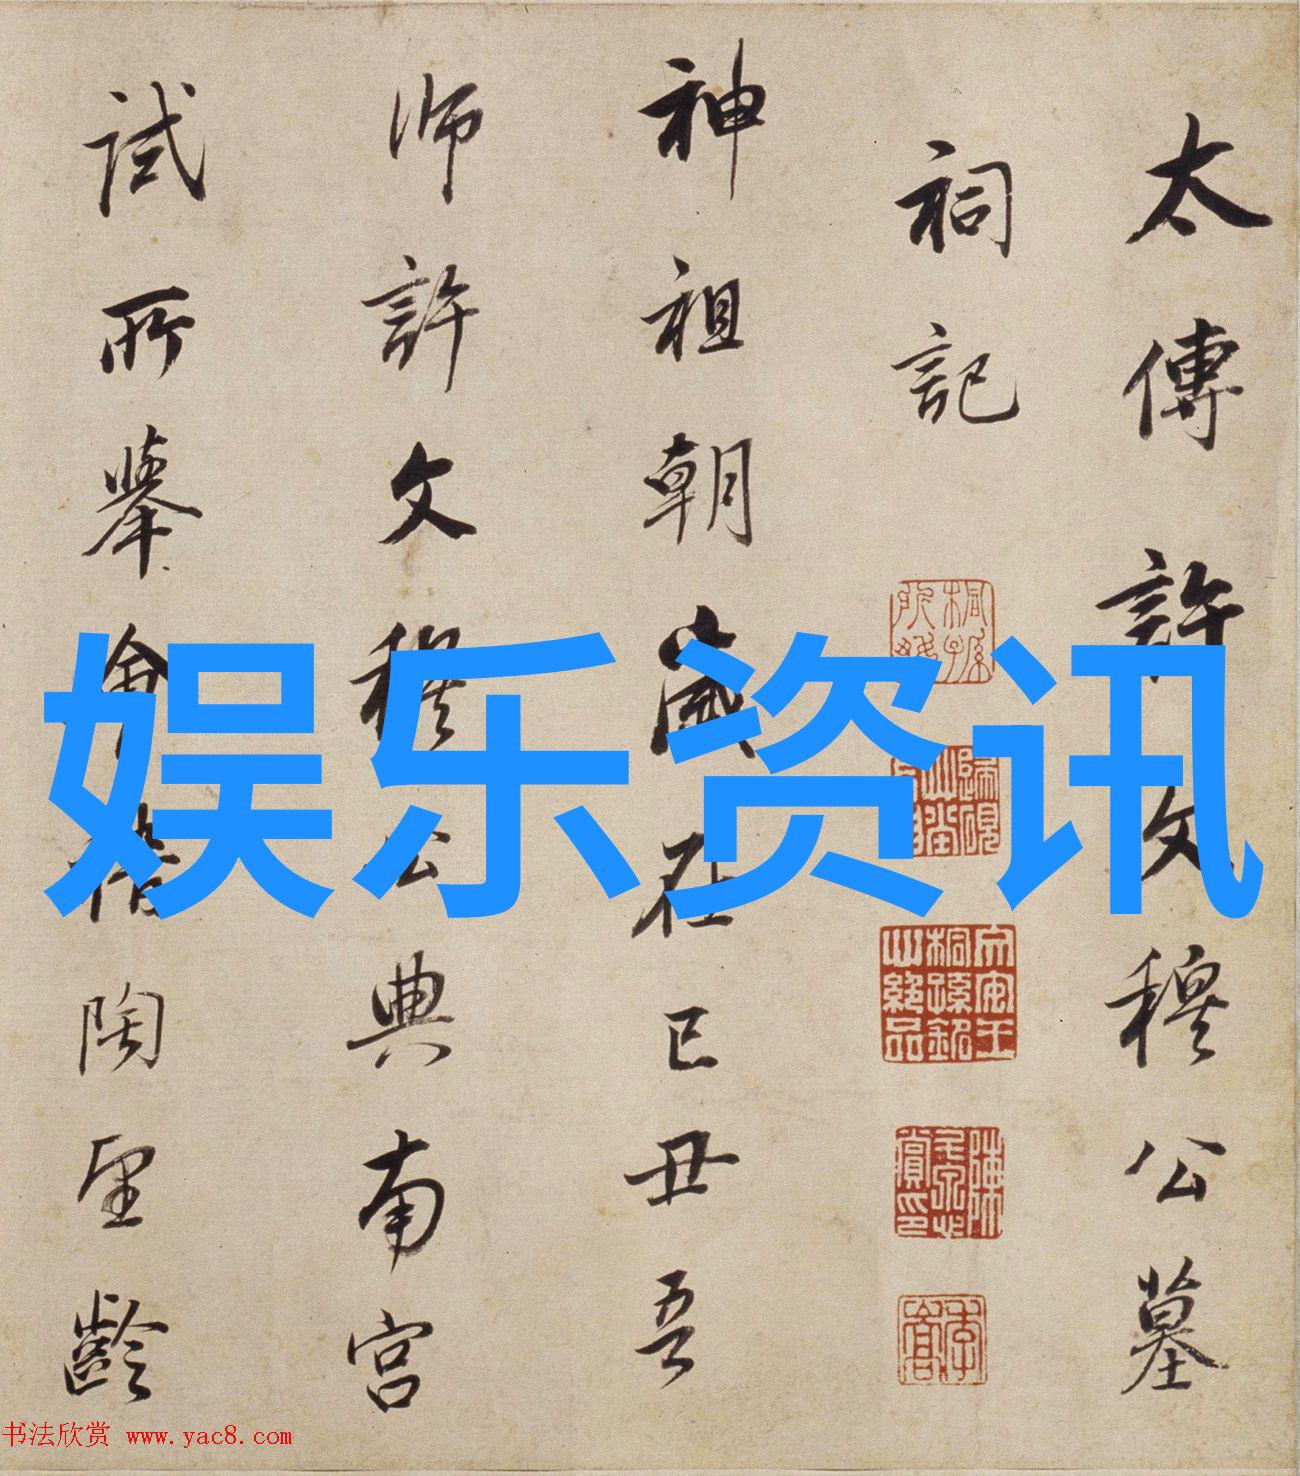 太傳許文穆公墓
祠記
神祖朝歲在已丑吾
師許文穆公典南宮
試所舉會稽陶望齡
娱乐资讯
书法欣赏 www.yac8.com